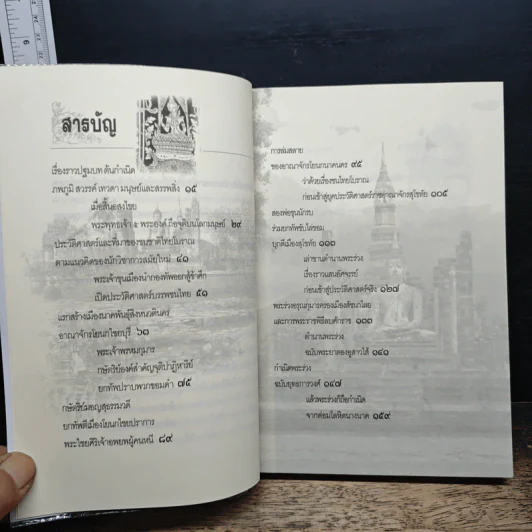 สารบัญ
เรื่องราวปฐมบท ต้นกำเนิด
ภพภูมิ สวรรค์ เทวดา มนุษย์และสรรพสิ่ง ๑๕
เมื่อสิ้นอสงไขย
พระพุทธเจ้า ๔ พระองค์ ถือจุติบนโลกมนุษย์ ๒๙
ประวัติศาสตร์และที่มาของชนชาติไทยโบราณ
ตามแนวคิดของนักวิชาการสมัยใหม่ ๔๑
พระเจ้าขุนเมืองนำกองทัพออกสู้ข้าศึก
เปิดประวัติศาสตร์บรรพชนไทย ๕๑
แรกสร้างเมืองนาคพันธุ์สิงหนวตินคร
อาณาจักรโยนกไชยบุรี ๖๓
พระเจ้าพรหมกุมาร
กษัตริย์องค์สำคัญจุติปาฏิหาริย์
ยกทัพปราบพวกขอมดำ ๗๕
กษัตริย์มอญสุธรรมวดี
ยกทัพตีเมืองโยนกไชยปราการ
พระไชยศิริเจ้าอพยพผู้คนหนี ๘๙
การล่มสลาย
ของอาณาจักรโยนกนาคนคร ๙๕
ว่าด้วยเรื่องชนไทยโบราณ
ก่อนเข้าสู่ยุคประวัติศาสตร์ราชอาณาจักรสุโขทัย ๑๐๕
สองพ่อขุนนักรบ
ร่วมยาทัพขับไล่ขอม
บุกตีเมืองสุโขทัย ๑๑๓
เล่าขานตำนานพระร่วง
เรื่องราวแสนอัศจรรย์
ก่อนเข้าสู่ประวัติศาสตร์จริง ๑๒๗
พระร่วงอรุณกุมารครองเมืองสัชนาไลย
และการพระราชพิธีลบศักราช ๑๓๓
ตำนานพระร่วง
ฉบับพระยาตองตูสาวไส้ ๑๔๑
กำเนิดพระร่วง
ฉบับยุทธการวงศ์ ๑๔๗
แล้วพระร่วงก็ถือกำเนิด
จากต่อมโลหิตนางนาค ๑๕๙